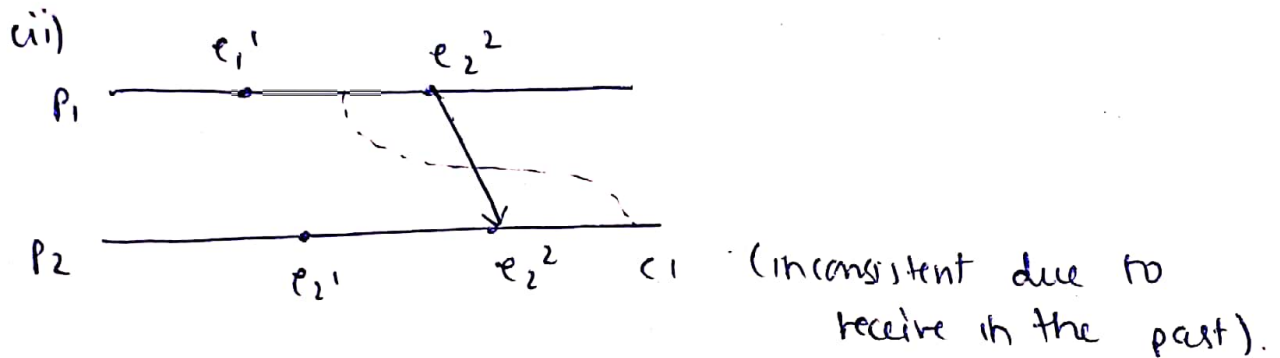 (iii)
e₁¹ e₂²
P₁
P2 e₂¹ e₂² C1 (inconsistent due to
receive in the past).